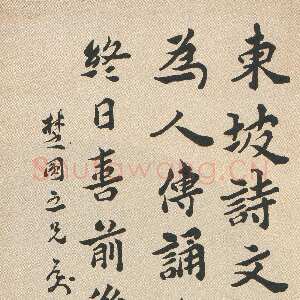 東坡詩文
為人傳誦
終日喜前後
楚國立兄
Shufawang.cn